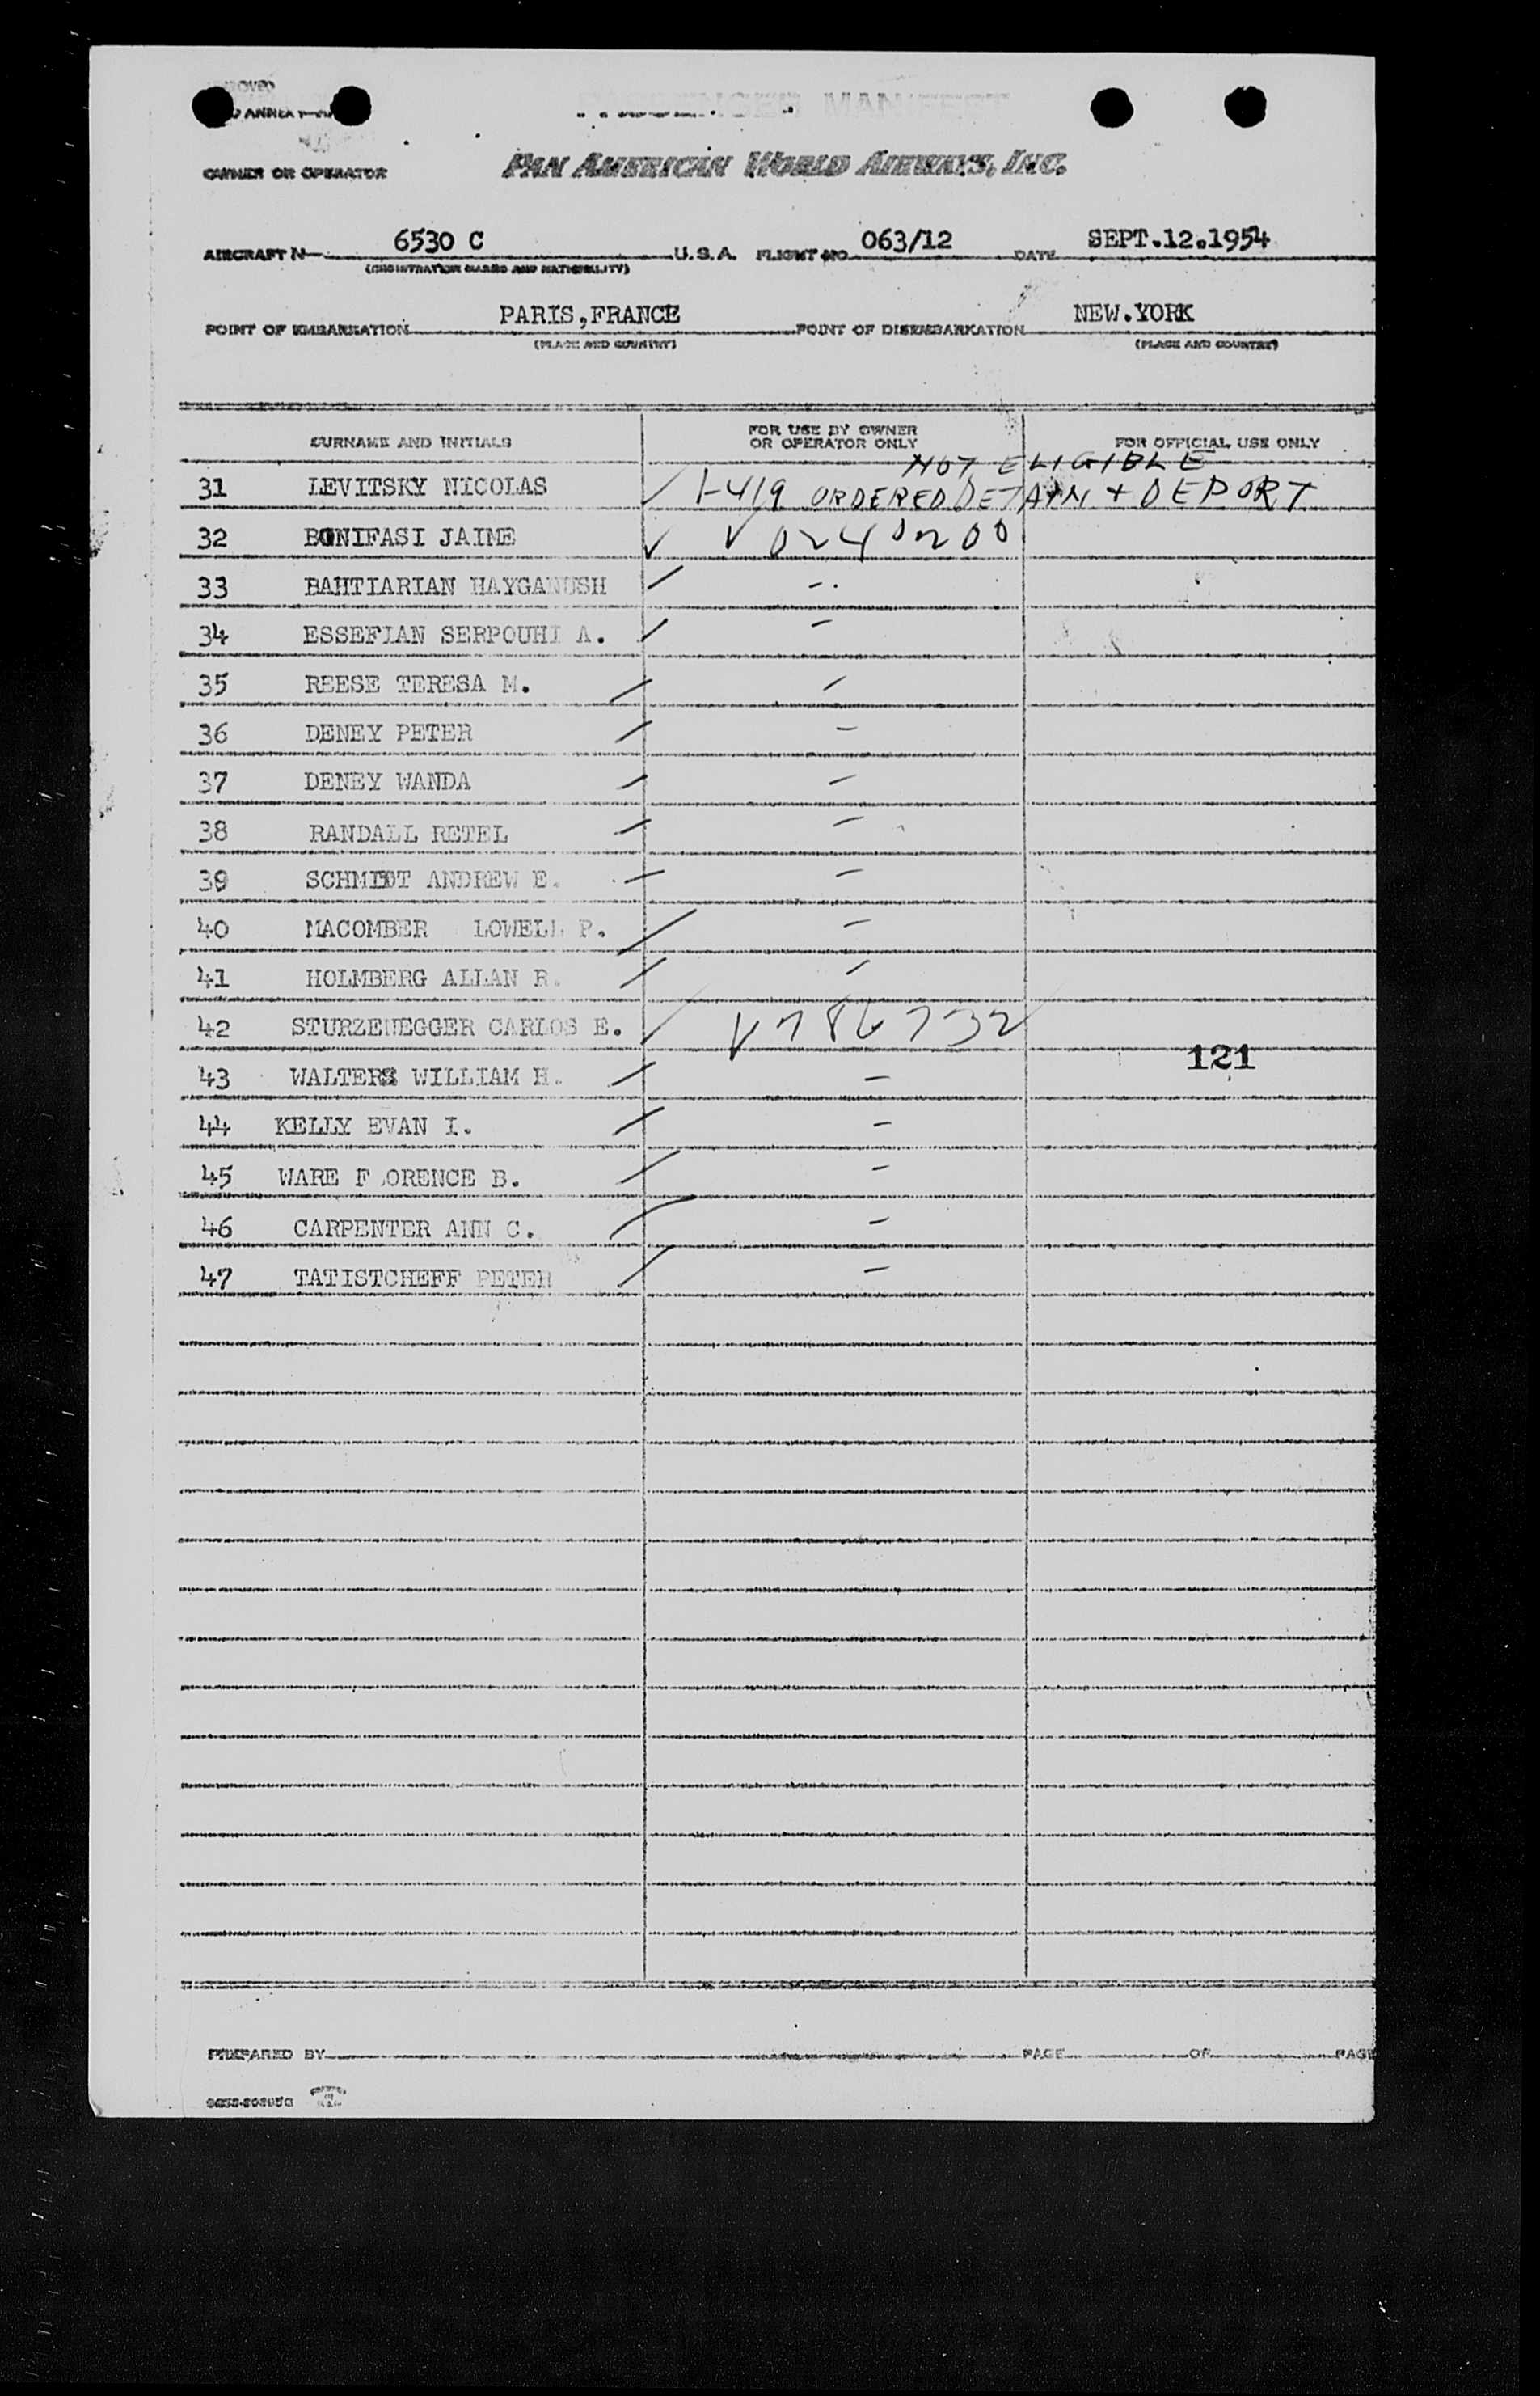 PASSENGER MANIFEST
OWNER OR OPERATOR
PAN AMERICAN WORLD AIRWAYS, INC.
AIRCRAFT N 6530 C U.S.A. FLIGHT NO. 063/12 DATE SEPT.12.1954
(REGISTRATION MARKS AND NATIONALITY)
POINT OF EMBARKATION PARIS,FRANCE POINT OF DISEMBARKATION NEW.YORK
(PLACE AND COUNTRY) (PLACE AND COUNTRY)
SURNAME AND INITIALS FOR USE BY OWNER OR OPERATOR ONLY FOR OFFICIAL USE ONLY
NOT ELIGIBLE
31 LEVITSKY NICOLAS I-419 ORDERED DETAIN + DEPORT
32 BONIFASI JAIME V 0240200
33 BAHTIARIAN HAYGANUSH
34 ESSEFIAN SERPOUHI A.
35 REESE TERESA M.
36 DENEY PETER
37 DENEY WANDA
38 RANDALL RETEL
39 SCHMIDT ANDREW E.
40 MACOMBER LOWELL P.
41 HOLMBERG ALLAN R.
42 STURZENEGGER CARLOS E. V786732
121
43 WALTERS WILLIAM H.
44 KELLY EVAN I.
45 WARE F ORENCE B.
46 CARPENTER ANN C.
47 TATISTCHEFF PETER
PREPARED BY PAGE OF PAGE